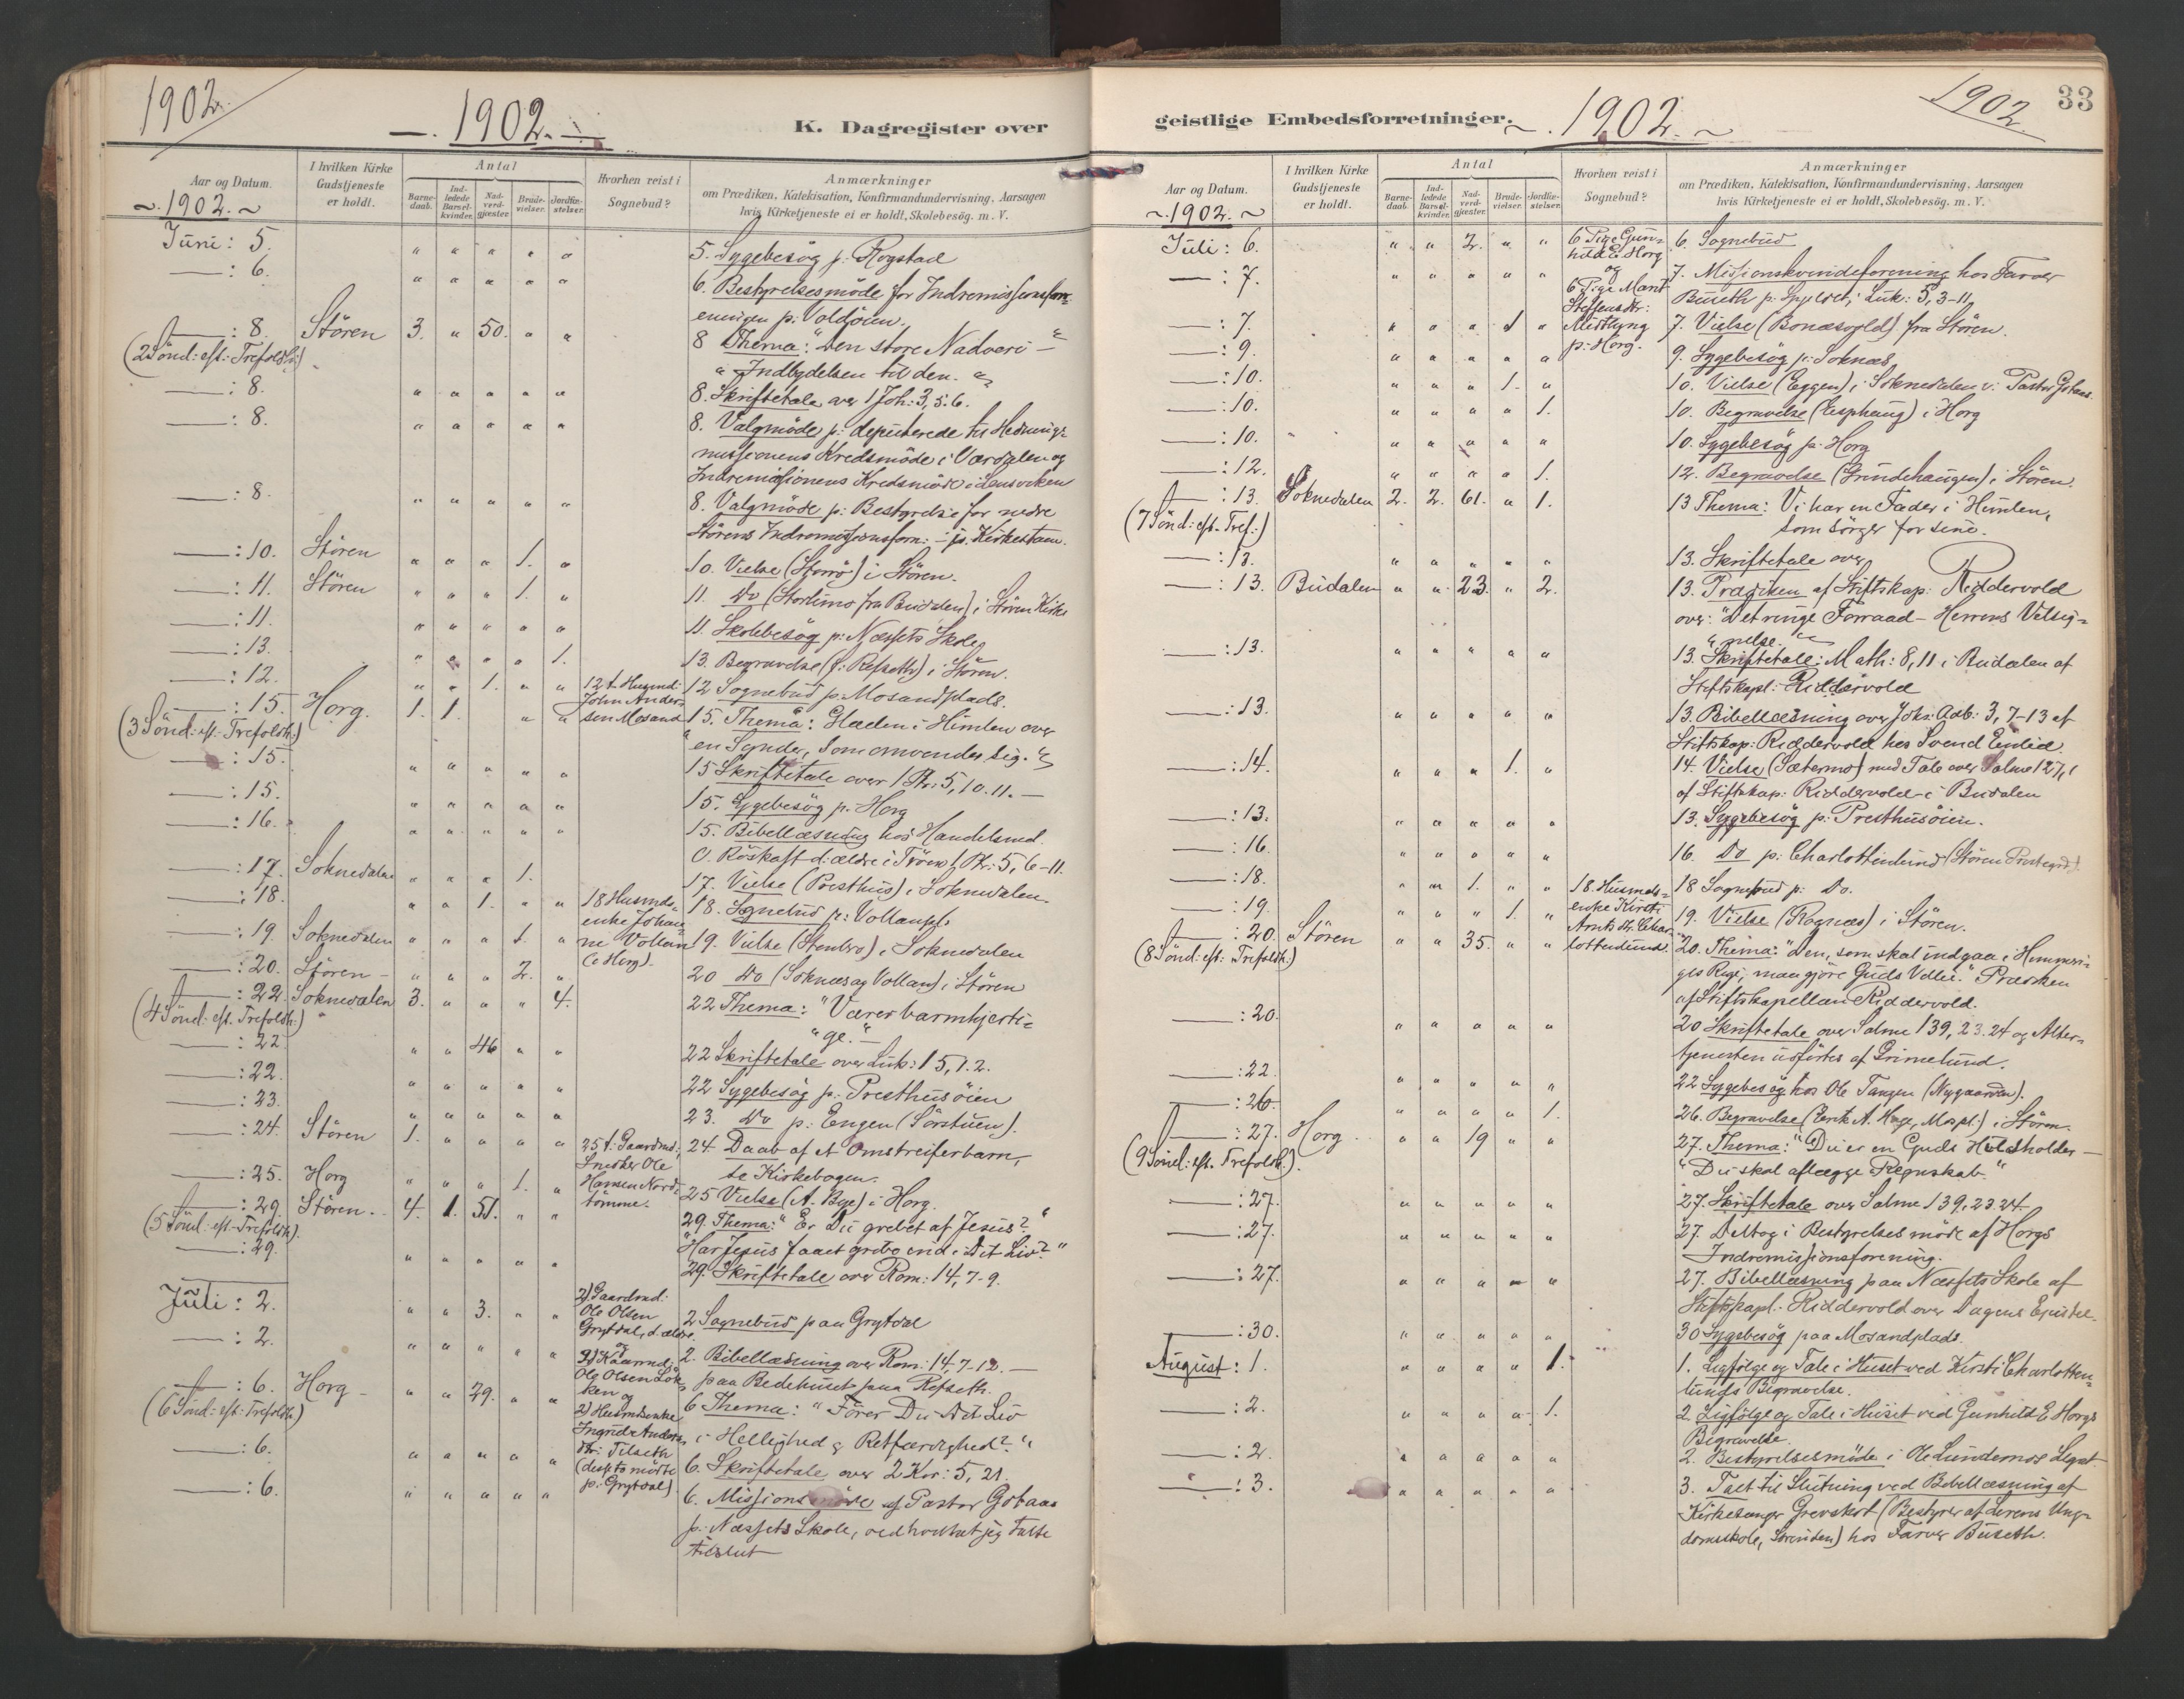 1902.
— . 1902. —
K. Dagregister over
Aar og Datum.
~ . 1902. ~
I hvilken Kirke
Gudstjeneste
er holdt.
Antal
Barne-
daab.
Ind-
ledede
Barsel-
kvinder.
Nad-
verd-
gjæster.
Brude-
vielser.
Jordfæ-
stelser.
Hvorhen reist i
Sognebud?
Anmærkninger
om Prædiken, Katekisation, Konfirmandundervisning, Aarsagen
hvis Kirketjeneste ei er holdt, Skolebesög. m. V.
Juni : 5. " " " " " 5. Sygebesög p: Rogstad
— : 6. " " " " " 6. Bestyrelsesmöde for Indremissionsfor-
eningen p: Voldöien.
— : 8. Stören 3. " 50. " " 8 Thema: "Den store Nadveri —
(2 Sönd: eft: Trefoldh:) " Indbydelsen til den. "
— : 8. " " " " " 8. Skriftetale over 1 Joh: 3, 5. 6.
— : 8. " " " " " 8. Valgmöde p: deputerede til Hednings-
missionens Kredsmöde i Værdalen og
Indremissionens Kredsmöde i Lensviken
— : 8. " " " " " 8. Valgmöde p: Bestyrelse for nedre
Störens Indremissionsforn: — p: Kirkestuen.
— : 10. Stören " " " 1. " 10. Vielse (Storrö) i Stören.
— : 11. Stören " " " 1. " 11. Do (Storlimo fra Budalen) i Stören Kirke
— : 11. " " " " " 11. Skolebesög p: Næssets Skole
— : 13. " " " " 1. 13. Begravelse (f: Refseth) i Stören.
— : 12. " " 1. " " 12 t. Husmd: John Ander- sen Mosand 12 Sognebud p: Mosandplads.
— : 15. Horg. 1. 1. " " 15. Thema: Glæden i Himlen over
(3 Sönd: eft: Trefoldh:) "en Synder, som omvender sig."
— : 15. " " " " " 15 Skriftetale over 1 Ptr: 5, 10. 11. —
— : 15. " " " " " 15. Sygebesög p. Horg
— : 16. " " " " " 15. Bibellæsning hos Handelsmd.
O. Röskaft d. ældre i 1 Ptr: 5, 6-11.
— : 17. Soknedalen " " " 1. 17. Vielse (Presthus) i Soknedalen.
— : 18. " " 1. " " 18 Husmds- enke Johan- ne Vollan (i Horg). 18. Sognebud p: Vollanpl.
— : 19. Soknedalen " " " 1. " 19. Vielse (Stenbro) i Soknedalen
— : 20. Stören — " " " 2. " 20 Do (Soknæs og Vollan) i Stören
— : 22. Soknedalen 3. " " " 4. 22 Thema: "Værer barmhjerti-
(4 Sönd: eft. Trefoldh:) "ge." —
— : 22. " " 46 " " 22 Skriftetale over Luk: 15, 1. 2.
— : 22. " " " " " 22 Sygebesög p: Presthusöien
— : 23. " " " " " 23. Do p: Engen (Sörstuen).
— : 24. Stören 1. " " " " 24. Daab af et Omstreiferbarn,
se Kirkebogen.
25 t. Gaardmd: Snedker Ole Hansen Nord- tömme.
— : 25. Horg " " " 1. " 25 Vielse (A. Bye) i Horg.
— : 29. Stören. 4. 1. 51. " " 29. Thema: "Er Du grebet af Jesus?"
(5 Sönd: eft. Trefoldh:). "Har Jesus faaet gribe ind i Dit Liv?"
— : 29. " " " " " 29. Skriftetale over Rom: 14, 7-9.
Juli : 2. " " 3. " " 2) Gaardmd: Ole Olsen Grytdal, d. ældre. og 2) Kaarmd: Ole Olsen Lök- ken og 2) Husmdsenke Ingrid Anders. dtr: Tilseth (dessets mödte p: Grytdal) 2 Sognebud paa Grytdal
— : 2. " " " " " 2. Bibellæsning over Rom: 14, 7-12. —
paa Bedehuset paa Refseth.
— : 6. Horg — " " 29. " " 6 Thema: "Förer Du Dit Liv
(6 Sönd: eft: Trefoldh:) i Hellighed & Retfærdighed?"
— : 6. " " " " " 6. Skriftetale over 2 Kor: 5, 21.
— : 6. " " " " " 6. Missionsmöde af Pastor Götaas
p: Næssets Skole, ved hvilket jeg talte
tilslut
geistlige Embedsforretninger.
~ . 1902. ~
1902.
33
Aar og Datum.
~ . 1902. ~
I hvilken Kirke
Gudstjeneste
er holdt.
Antal
Barne-
daab.
Ind-
ledede
Barsel-
kvinder.
Nad-
verd-
gjæster.
Brude-
vielser.
Jordfæ-
stelser.
Hvorhen reist i
Sognebud?
Anmærkninger
om Prædiken, Katekisation, Konfirmandundervisning, Aarsagen
hvis Kirketjeneste ei er holdt, Skolebesög. m. V.
Juli : 6. " " 2. " " 6 Pige Gun- hild E. Horg og 6 Pige Marit Steffensdtr: Midtlyng p: Horg. 6. Sognebud
— : 7. " " " " " 7. Missionskvindeforening hos Farver
Buseth p: Spjeldet; Luk: 5, 3-11
— : 7. " " " 1 " 7. Vielse (Bonæsvold) fra Stören.
— : 9. " " " " " 9. Sygebesög p: Soknæs
— : 10. " " " 1. " 10. Vielse (Eggen) i Soknedalen v: Pastor Götaas.
— : 10. " " " " 1. 10. Begravelse (Esphaug) i Horg
— : 10. " " " " " 10. Sygebesög p: Horg
— : 12. " " " " 1. 12. Begravelse (Grindehaugen) i Stören.
— : 13. Soknedalen 2. 2. 61. " 1. 13 Thema: Vi har en Fader i Himlen,
(7 Sönd: eft. Tref:) som sörger for sine.
— : 13. " " " " " 13. Skriftetale over
— : 13. Budalen " " 23. " 2. 13. Prædiken af Stiftskap: Riddervold
over: "Det ringe Forraad — Herrens Velsig-
"nelse."
— : 13. " " " " " 13. Skriftetale: Math: 8, 11 i Budalen af
Stiftskapl: Riddervold
— : 13. " " " " " 13. Bibellæsning over Johs: Aab: 3, 7-13 af
Stiftskap: Riddervold hos Svend Enlid.
— : 14. " " " 1. " 14. Vielse (Sætermo) med Tale over Salme 127, 1
af Stiftskap: Riddervold i Budalen
— : 13. " " " " " 13. Sygebesög p: Presthusöien.
— : 16. " " " " " 16. Do p: Charlottenlund (Stören Prestegrd.).
— : 18. " " 1. " " 18. Husmds- enke Kirsti Arntsdtr. Char- lottenlund. 18 Sognebud p: Do.
— : 19. " " " 1. " 19. Vielse (Rognæs) i Stören.
— : 20. Stören " " 35. " " 20. Thema: "Den, som skal indgaa i Himmeri-
(8 Sönd: eft: Trefoldh:) ges Rige, maa gjöre Guds Vilie." Prædiken
af Stiftskapellan Riddervold.
— : 20. " " " " " 20 Skriftetale over Salme 139, 23. 24 og Alter-
tjenesten udförtes af Grimelund.
— : 22. " " " " " 22 Sygebesög hos Ole Tangen (Nygaarden).
— : 26. " " " " 1. 26. Begravelse (Eerik A. Hage, Mospl.) i Stören.
— : 27. Horg. " " 19 " " 27. Thema: "Du er en Guds Husholder —
(9 Sönd: eft. Trefoldh:). "Du skal aflægge Regnskab."
— : 27. " " " " " 27. Skriftetale over Salme 139, 23. 24.
— : 27. " " " " " 27. Deltog i Bestyrelsesmöde af Horgs
Indremissionsforening.
— : 27. " " " " " 27. Bibellæsning paa Næssets Skole af
Stiftskapl. Riddervold over Dagens Epistel.
— : 30. " " " " " 30 Sygebesög paa Mosandplads.
August : 1. " " " " 1. 1. Ligfölge og Tale i Huset ved Kirsti Charlotten-
lunds Begravelse.
— : 2. " " " " 1. 2. Ligfölge og Tale i Huset ved Gunhild E Horgs
Begravelse.
— : 2. " " " " " 2. Bestyrelsesmöde i Ole Lundemos Legat.
— : 3. " " " " " 3. Talt til Slutning ved Bibellæsning af
Kirkesanger Grevskot (Bestyrer af Lerens Ung-
domsskole, Strinden) hos Farver Buseth.